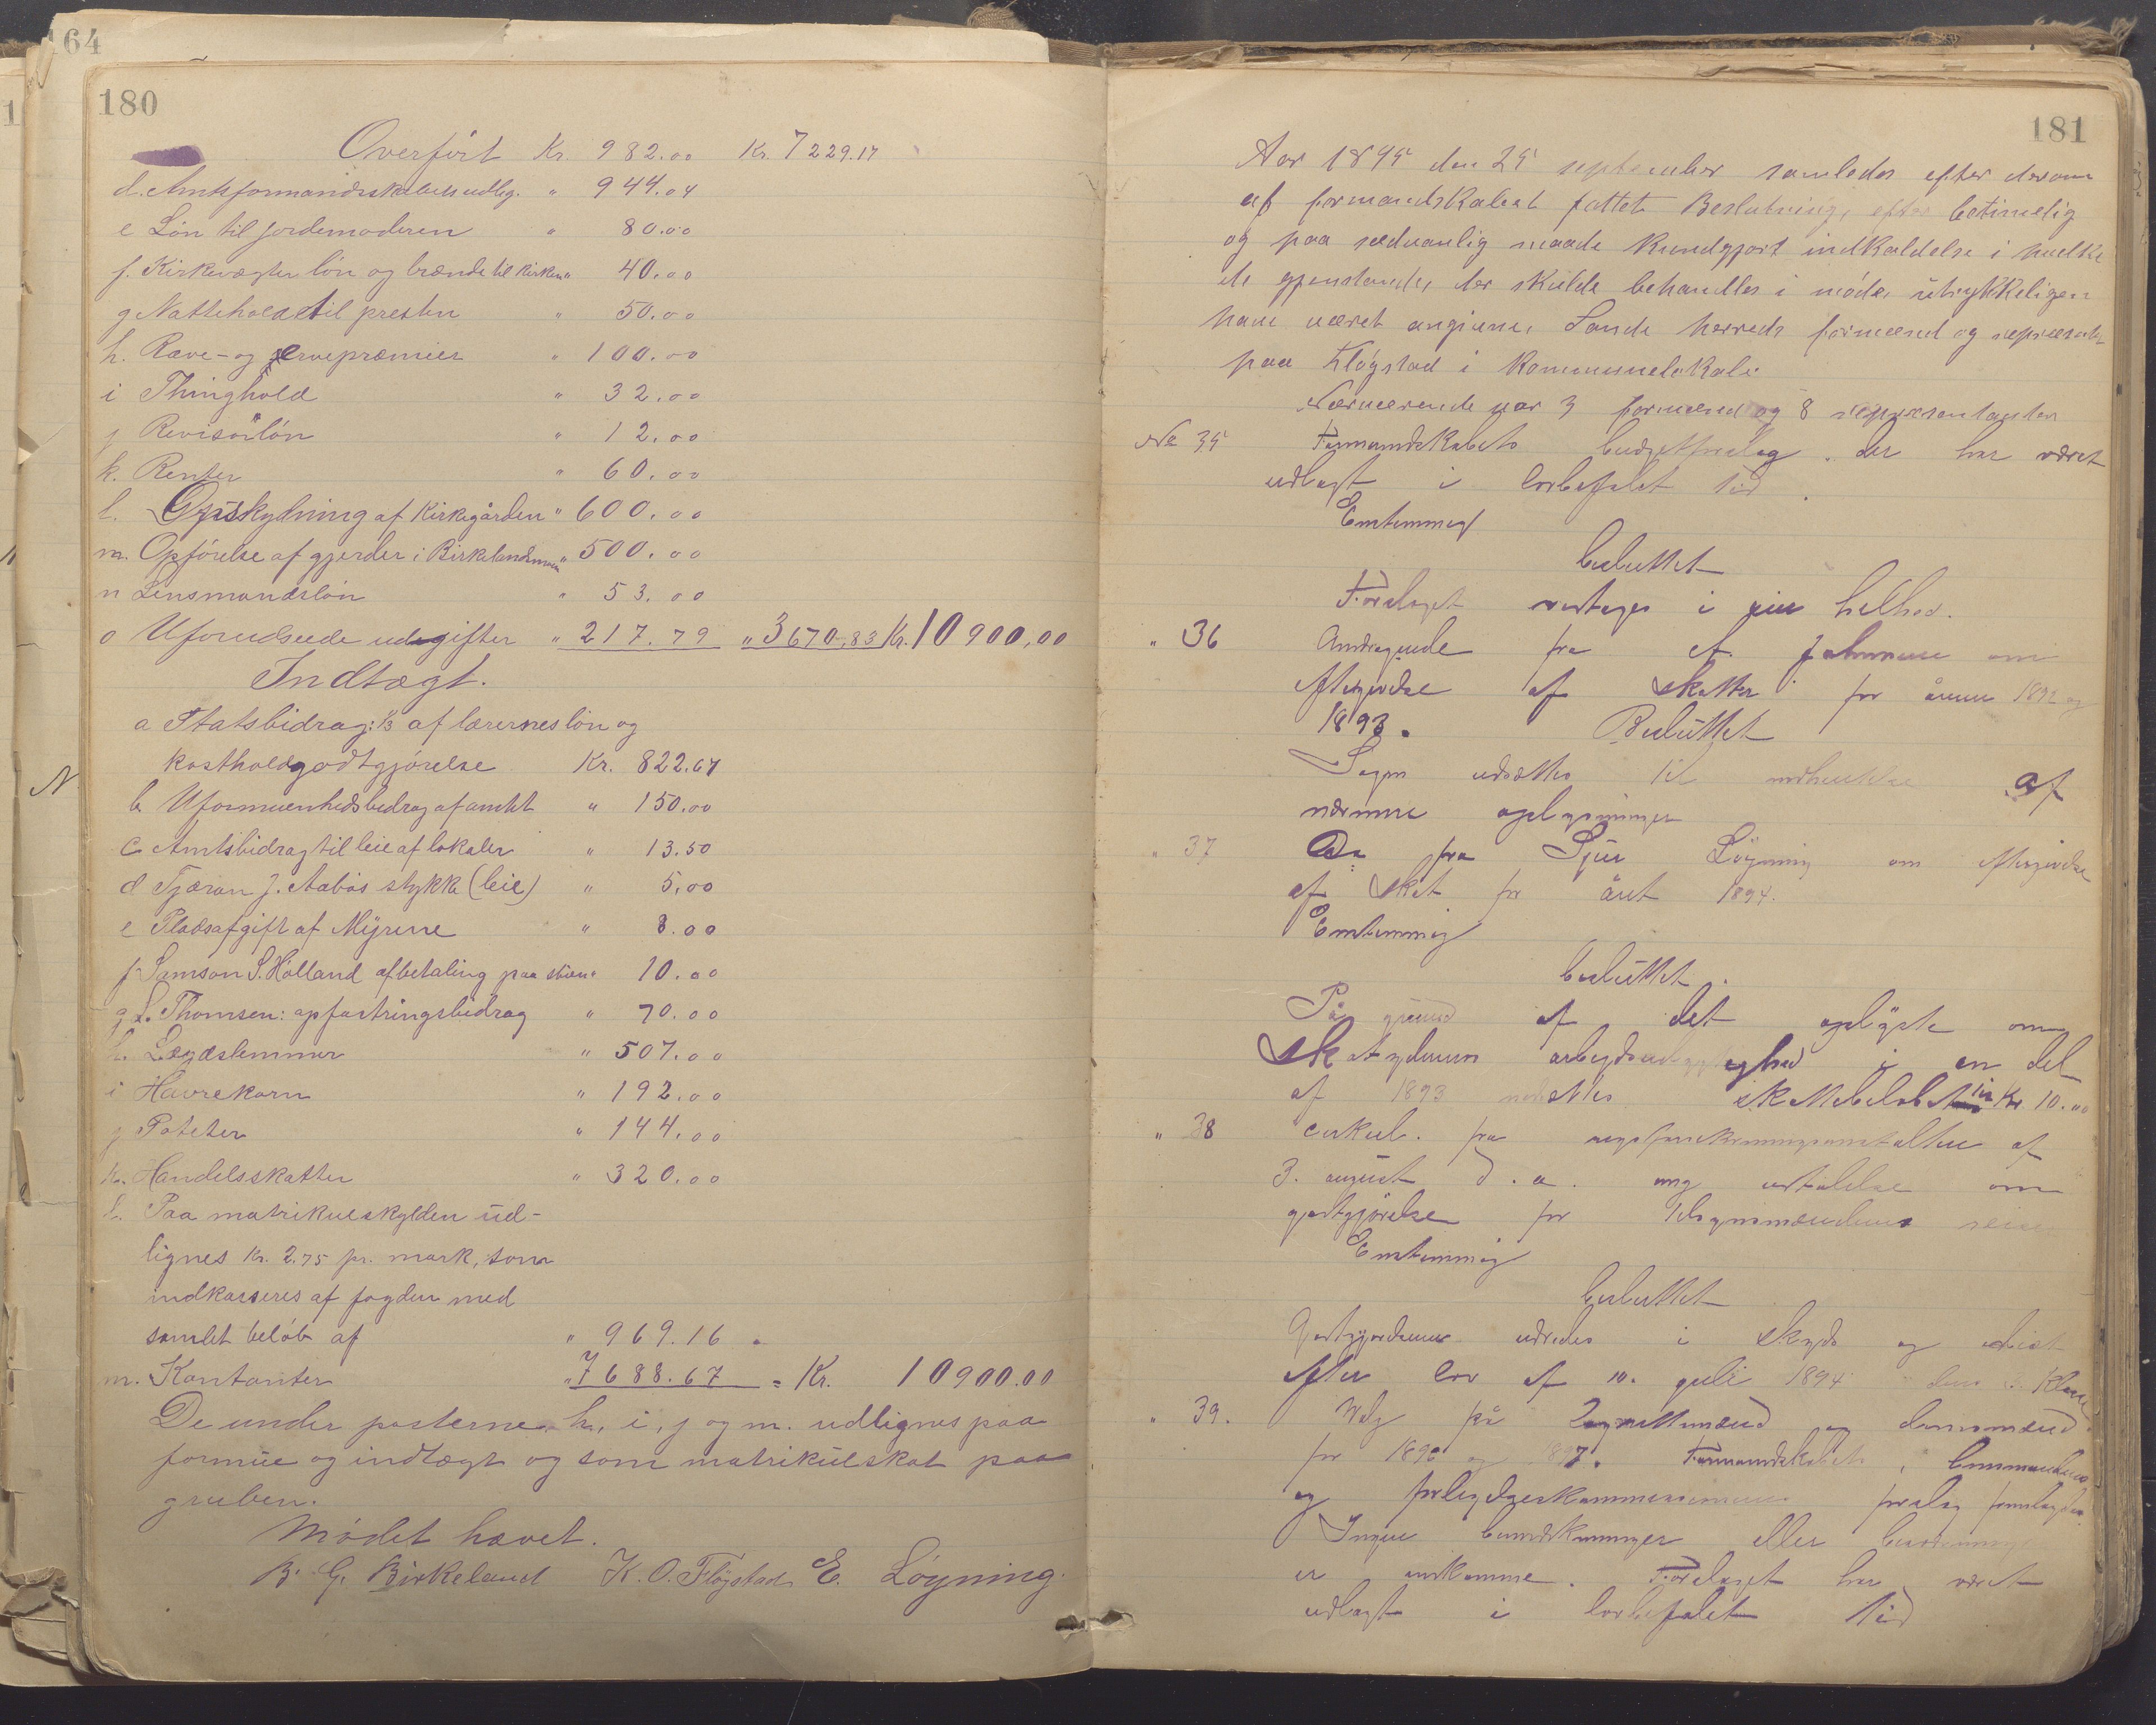 164
180
Overført Kr. 982.00 Kr. 7229.17
d. Amtsformandskabets udlig. " 944.04
e Løn til jordemoderen " 80.00
f. Kirkevægter løn og brænde til kirken " 40.00
g Nattehold til presten " 50.00
h. Ræve- og ørnepræmier " 100.00
i Thinghold " 32.00
j Revisorløn " 12.00
k. Renter " 60.00
l. Opfyldning af Kirkegården " 600.00
m. Opførelse af gjerder i Birkelandsmoen " 500.00
n Lensmandsløn " 53.00
o Uforudseede udgifter " 217.79 " 3670,83 Kr. 10900,00
Indtægt.
a Statsbidrag: 1/3 af lærernes løn og
kostholdgodtgjørelse Kr. 822.67
b Uformuenhedsbidrag af amtet " 150.00
c Amtsbidrag til leie af lokaler " 13.50
d Tjæran J. Aabøs stykke (leie) " 5,00
e Pladsafgift af Myrene " 8.00
f Samson S. Hølland afbetaling paa skien " 10.00
g S. Thomsen: opfostringsbidrag " 70.00
h. Lægdslemmer " 507.00
i Havrekorn " 192.00
j Poteter " 144.00
k. Handelsskatter " 320.00
l. Paa matrikulskylden ud-
lignes Kr. 2.75 pr. mark, som
indkasseres af fogden med
samlet beløb af " 969.16
m. Kontanter " 7688.67 = Kr. 10900.00
De under posterne h, i, j og m. udlignes paa
formue og indtægt og som matrikulskat paa
gruben.
Mødet hævet.
B. G. Birkeland K. O. Fløgstad E. Løyning.
181
Aar 1895 den 25 september samledes efter derom
af formandskabet fattet Beslutning, efter betimelig
og paa sædvanlig maade kundgjort indkaldelse i hvilke
de gjenstande, der skulde behandles i møde, utrykkeligen
have været angivne, Sande herreds formænd og repræsent.
paa Fløgstad i kommunelokale
Nærværende var 3 formænd og 8 repræsentanter
No 35 Formandskabets budgetforslag, der har været
udlagt i lovbefalet tid.
Enstemmig
besluttet
Forslaget vedtages i sin helhed.
" 36 Andragende fra A. Johnsen om
eftergivelse af skatter for årene 1892 og
1893. Besluttet
Sagen udsættes til indhentelse af
nærmere oplysninger
" 37 Do fra Sjur Løyning om eftergivelse
af skat for året 1894.
Enstemmig
besluttet.
På grund af det oplyste om
Skatyderens arbeydsudygtighed i en del
af 1893 nedsættes skattebeløbet til Kr 10.00
" 38 Cirkul. fra rigsforsikringsanstalten af
3. august d. a. ang udtalelse om
godtgjørelse for tilsynsmændens reise
Enstemmig
besluttet
Godtgjørelsen udredes i skyds og diæt
efter lov af 10. juli 1894 klasse
" 39. Valg på lagrettemænd og domsmænd
for 1896 og 1897. Formandskabets,
og forligelseskommissionens forslag fremlagdes.
Ingen bemerkninger eller
er indkomne. Forslaget har været
udlagt i lovbefalet tid